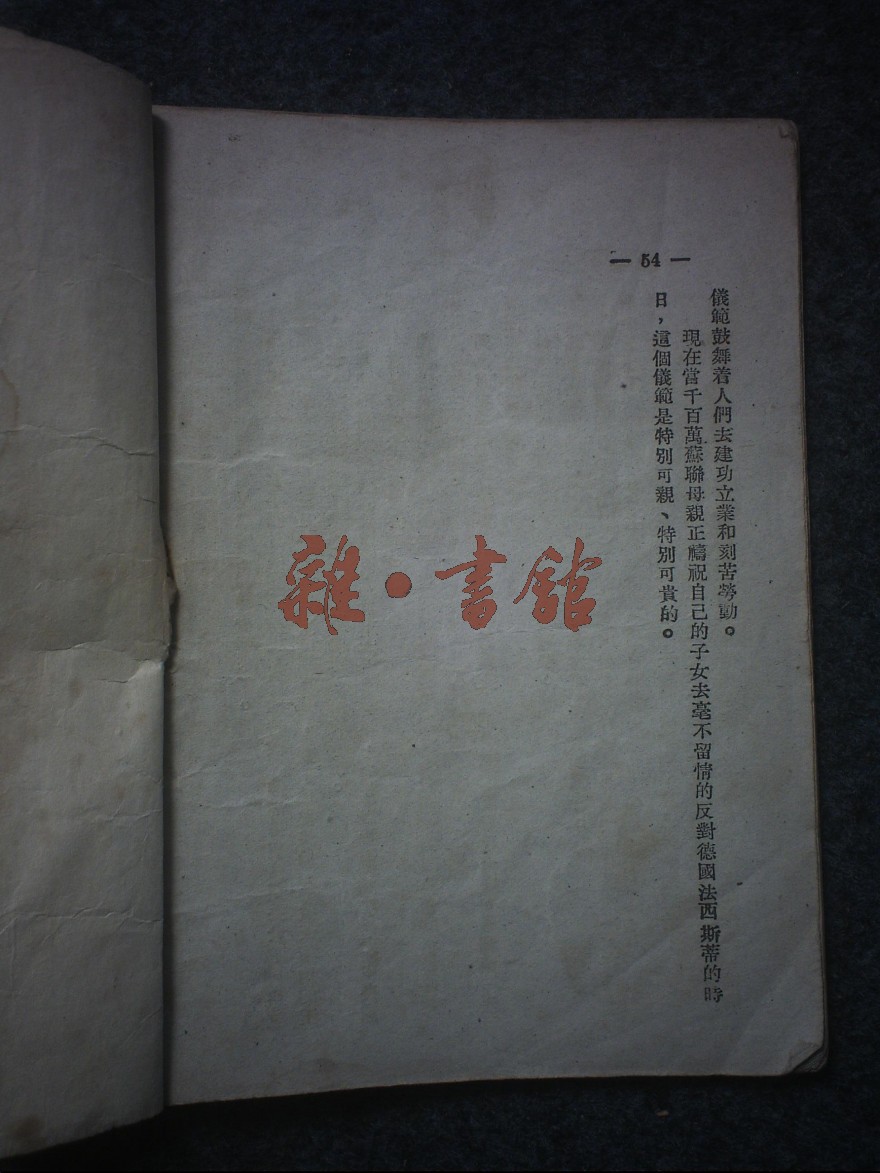 — 54 —
儀範鼓舞着人們去建功立業和刻苦勞動。
現在當千百萬蘇聯母親正禱祝自己的子女去毫不留情的反對德國法西斯蒂的時
日，這個儀範是特別可親、特別可貴的。
雜·書館